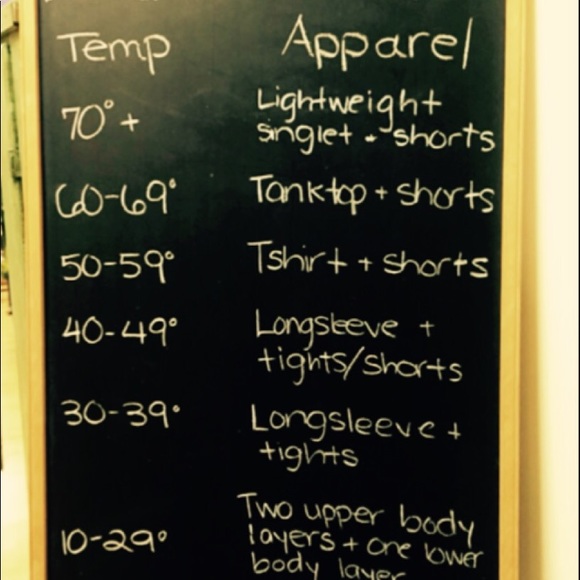 Temp Apparel
70°+ Lightweight
singlet + shorts
60-69° Tanktop + shorts
50-59° Tshirt + shorts
40-49° Longsleeve +
tights/shorts
30-39° Longsleeve +
tights
10-29° Two upper body
layers + one lower
body layer